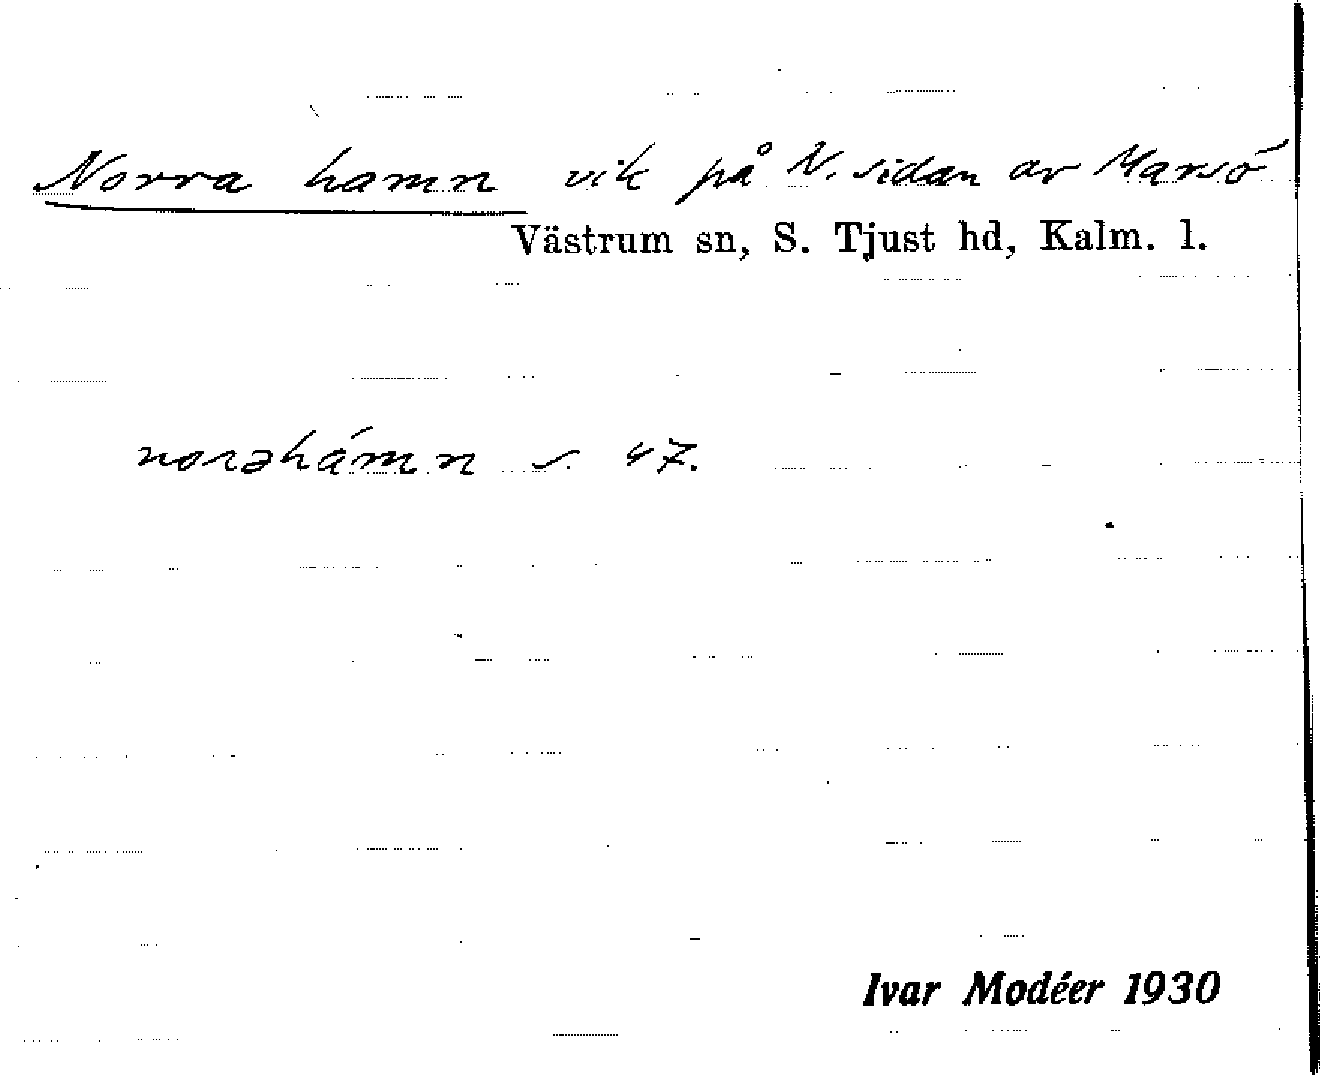 Norra hamn vik på N. sidan av Marsö
Västrum sn, S. Tjust hd, Kalm. l.
norəhámn s. 47.
Ivar Modéer 1930